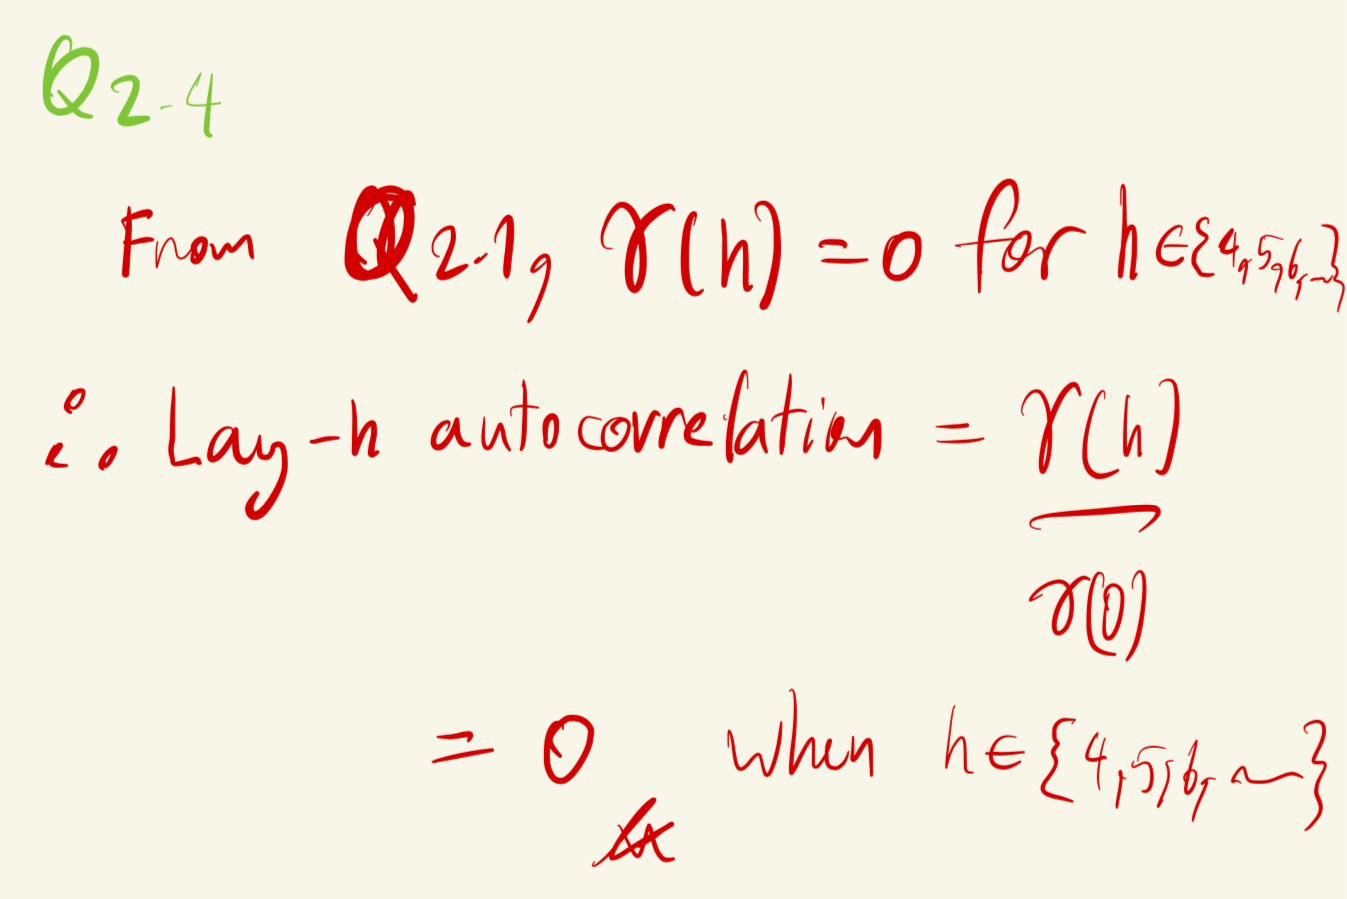 Q2-4
From Q2.1, γ(h) = 0 for h∈{4,5,6,~}
∴ Lag-h autocorrelation = γ(h)
γ(0)
= 0 when h∈{4,5,6,~}